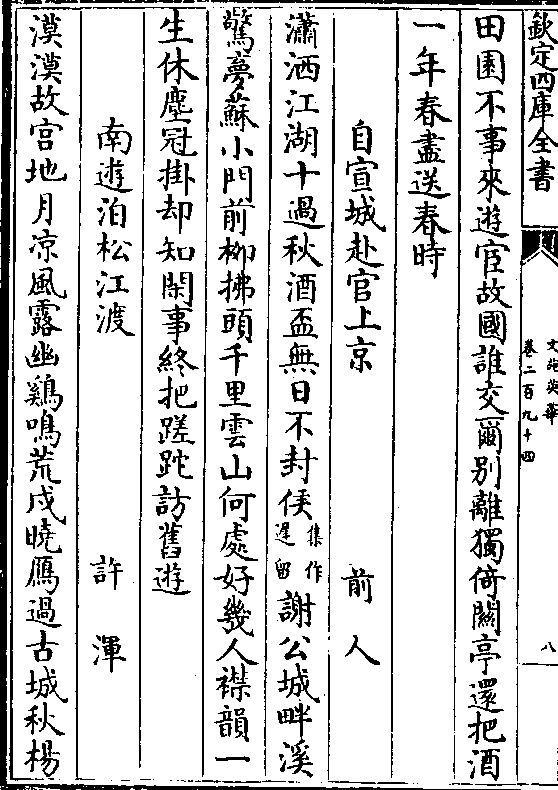 欽定四庫全書
文苑英華
卷二百九十四
八
田園不事來遊宦故國誰交爾别離獨倚關亭還把酒
一年春盡送春時
自宣城赴官上京 前人
瀟洒江湖十過秋酒盃無日不封侯集作遲留謝公城畔溪
驚夢蘇小門前柳拂頭千里雲山何處好幾人襟韻一
生休塵冠掛却知閑事終把蹉跎訪舊遊
南遊泊松江渡 許渾
漠漠故宫地月凉風露幽鷄鳴荒戍曉鴈過古城秋楊